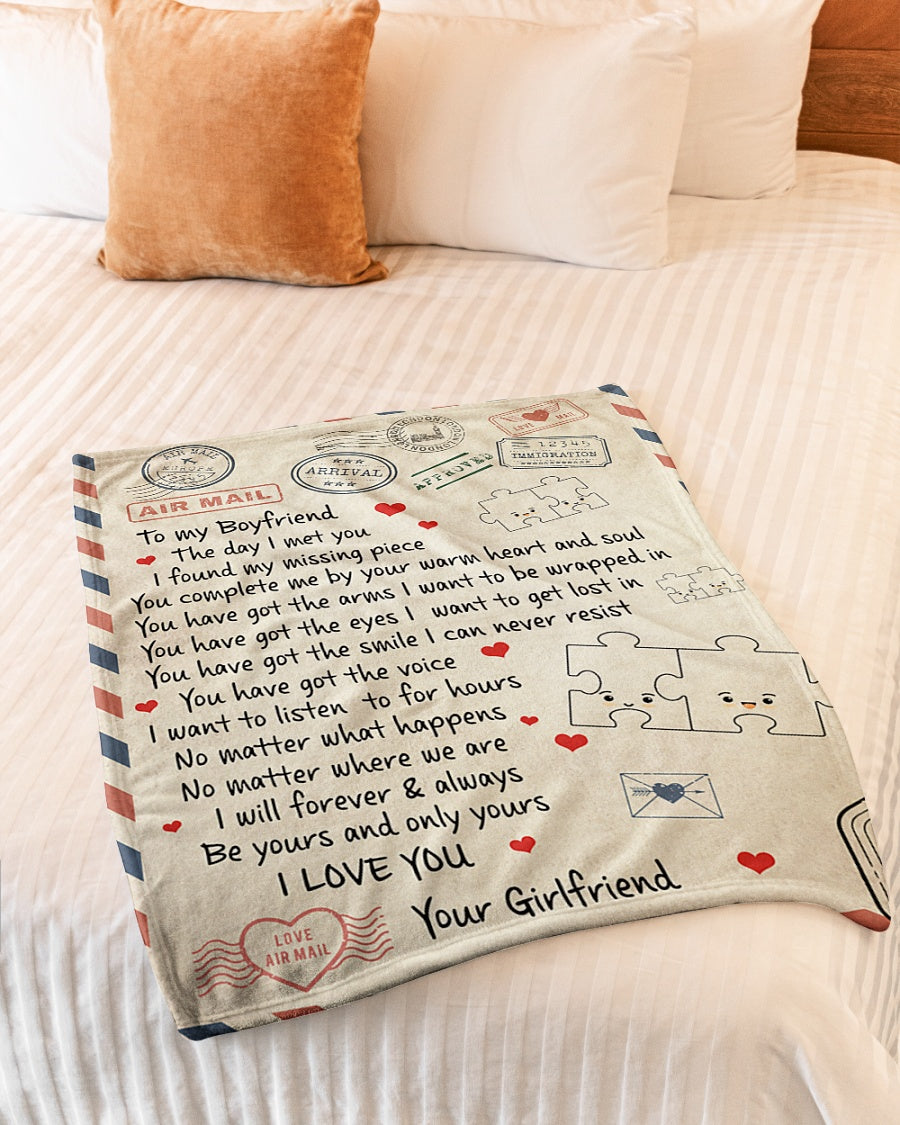 AIR MAIL
EUROPE
LONDON LONDON LONDON
LOVE MAIL
ARRIVAL
APPROVED
12345
IMMIGRATION
AIR MAIL
To my Boyfriend
The day I met you
I found my missing piece
You complete me by your warm heart and soul
You have got the arms I want to be wrapped in
You have got the eyes I want to get lost in
You have got the smile I can never resist
You have got the voice
I want to listen to for hours
No matter what happens
No matter where we are
I will forever & always
Be yours and only yours
I LOVE YOU
Your Girlfriend
LOVE
AIR MAIL